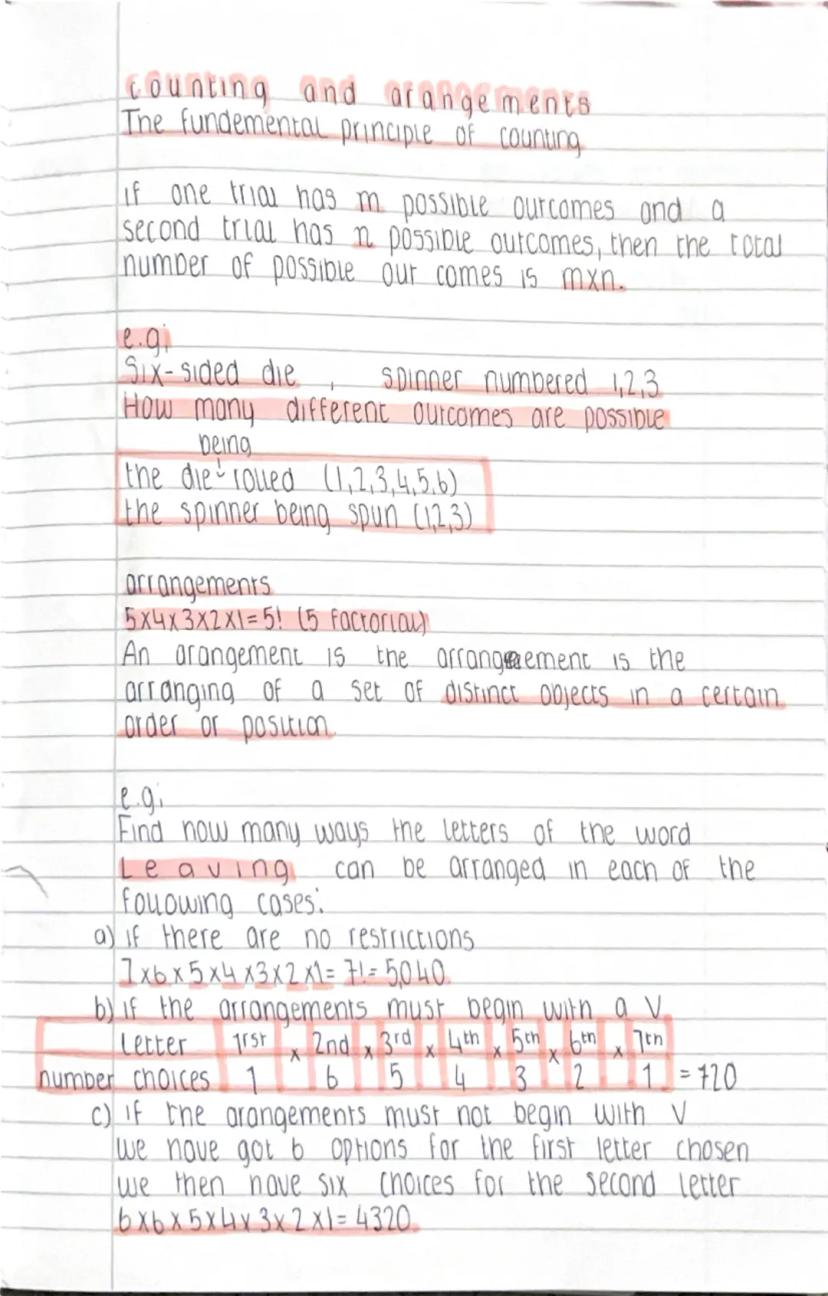 counting and arangements
The fundemental principle of counting
if one trial has m possible outcomes and a
second trial has n possible outcomes, then the total
number of possible out comes is mxn.
e.g;
Six-sided die , spinner numbered 1,2,3
How many different outcomes are possible
being
the die rolled (1,2,3,4,5,6)
the spinner being spun (1,2,3)
arrangements
5x4x3x2x1=5! (5 factorial)
An arangement is the arrangement is the
arranging of a set of distinct objects in a certain
order or position
e.g;
Find how many ways the letters of the word
Leaving can be arranged in each of the
following cases:
a) if there are no restrictions
7x6x5x4x3x2x1=7!=5,040
b) if the arrangements must begin with a V
Letter 1rst x 2nd x 3rd x 4th x 5th x 6th x 7th
number choices 1 6 5 4 3 2 1 =720
c) if the arangements must not begin with V
we have got 6 options for the first letter chosen
we then have six choices for the second letter
6x6x5x4x3x2x1=4320